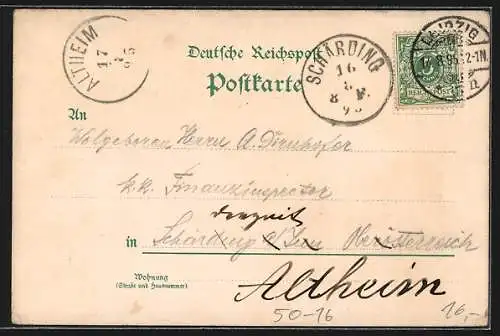 ALTHEIM
17
8
95
Deutsche Reichspost
Postkarte
SCHÄRDING
16
8
8 F.
95
LEIPZIG
8.95. 2-1N.
5
REICHSPOST
An
Wolgeboren Herrn A. Dirnhofer
k.k. Finanzinspector
derzeit
in Schärding a/Inn Oberösterreich
Altheim
Wohnung
(Straße und Hausnummer)
50-16
16,-